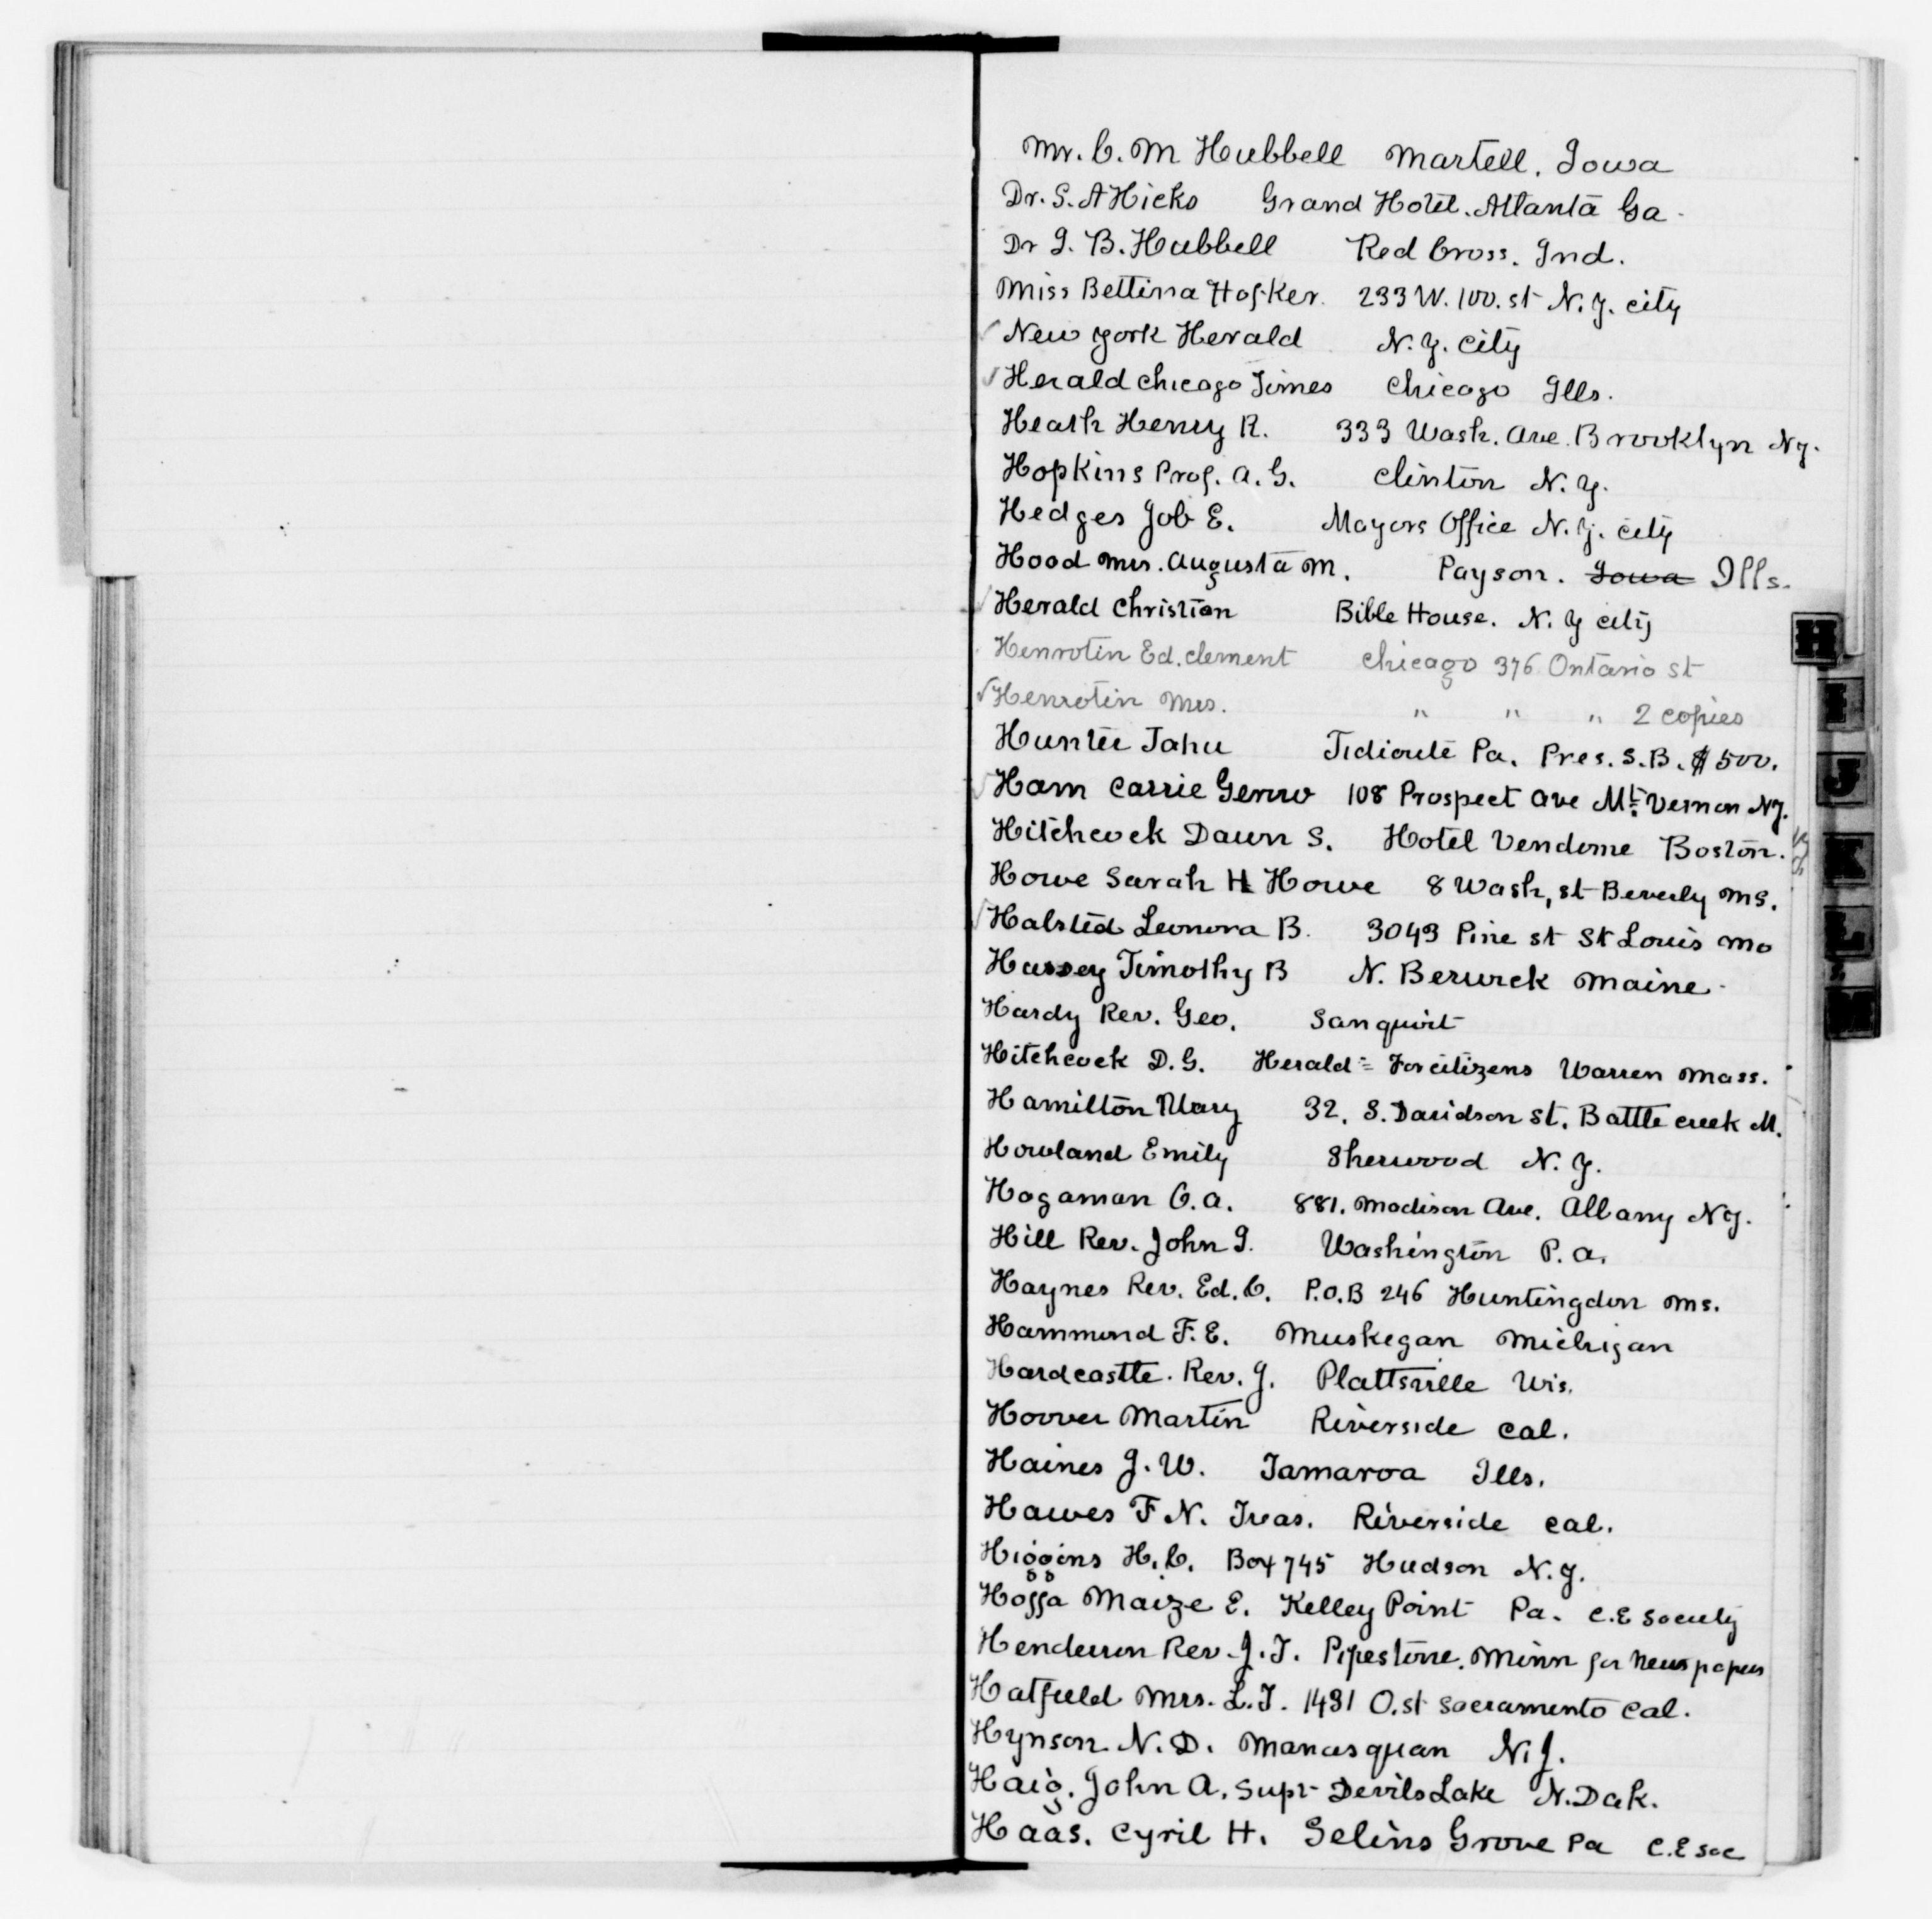 Mr. C. M Hubbell Martell, Iowa
Dr. S. A Hicks Grand Hotel. Atlanta Ga.
Dr J. B. Hubbell Red Cross. Ind.
Miss Bettina Hofker. 233 W. 100. st N. Y. city
✓ New York Herald N. Y. city
✓ Herald Chicago Times Chicago Ills.
Heath Henry R. 333 Wash. Ave. Brooklyn Ny.
Hopkins Prof. A. G. Clinton N. Y.
Hedges Job E. Mayors Office N. Y. city
Hood Mrs. Augusta M. Payson. Iowa Ills.
✓ Herald Christian Bible House. N. Y city
Henrotin Ed. Clement Chicago 376 Ontario st
✓ Henrotin Mrs. " " " 2 copies
Hunter Jahu Tidioute Pa. Pres. S. B. $ 500.
✓ Ham Carrie 108 Prospect Ave Mt. Vernon NY.
Hitchcock Dawn S. Hotel Vendome Boston.
Howe Sarah H Howe 8 Wash, st Beverly Ms.
✓ Halsted Leonora B. 3043 Pine st St Louis Mo
Hussey Timothy B N. Berwick Maine.
Hardy Rev. Geo. Sanquoit
Hitchcock D. G. Herald = For citizens Warren Mass.
Hamilton Mary 32. S. Davidson st. Battle creek M.
Howland Emily Sherwood N. Y.
Hogaman O. A. 881. Madison Ave. Albany NY.
Hill Rev. John J. Washington P. a.
Haynes Rev. Ed. C. P.O.B 246 Huntingdon Ms.
Hammond F. E. Muskegan Michigan
Hardcastle. Rev. J. Plattsville Wis.
Hoover Martin Riverside Cal.
Haines J. W. Tamaroa Ills.
Hawes F N. Treas. Riverside Cal.
Higgins H. C. Box 745 Hudson N. Y.
Hoffa Maize E. Kelley Point Pa. C. E Society
Henderson Rev. J. T. Pipestone. Minn for Newspapers
Hatfield Mrs. L. T. 1431 O. st Sacramento Cal.
Hynson N. D. Manasquan N. J.
Haig. John A. Supt Devils Lake N. Dak.
Haas. Cyril H. Selins Grove Pa C. E Soc
H
I
J
K
L
M